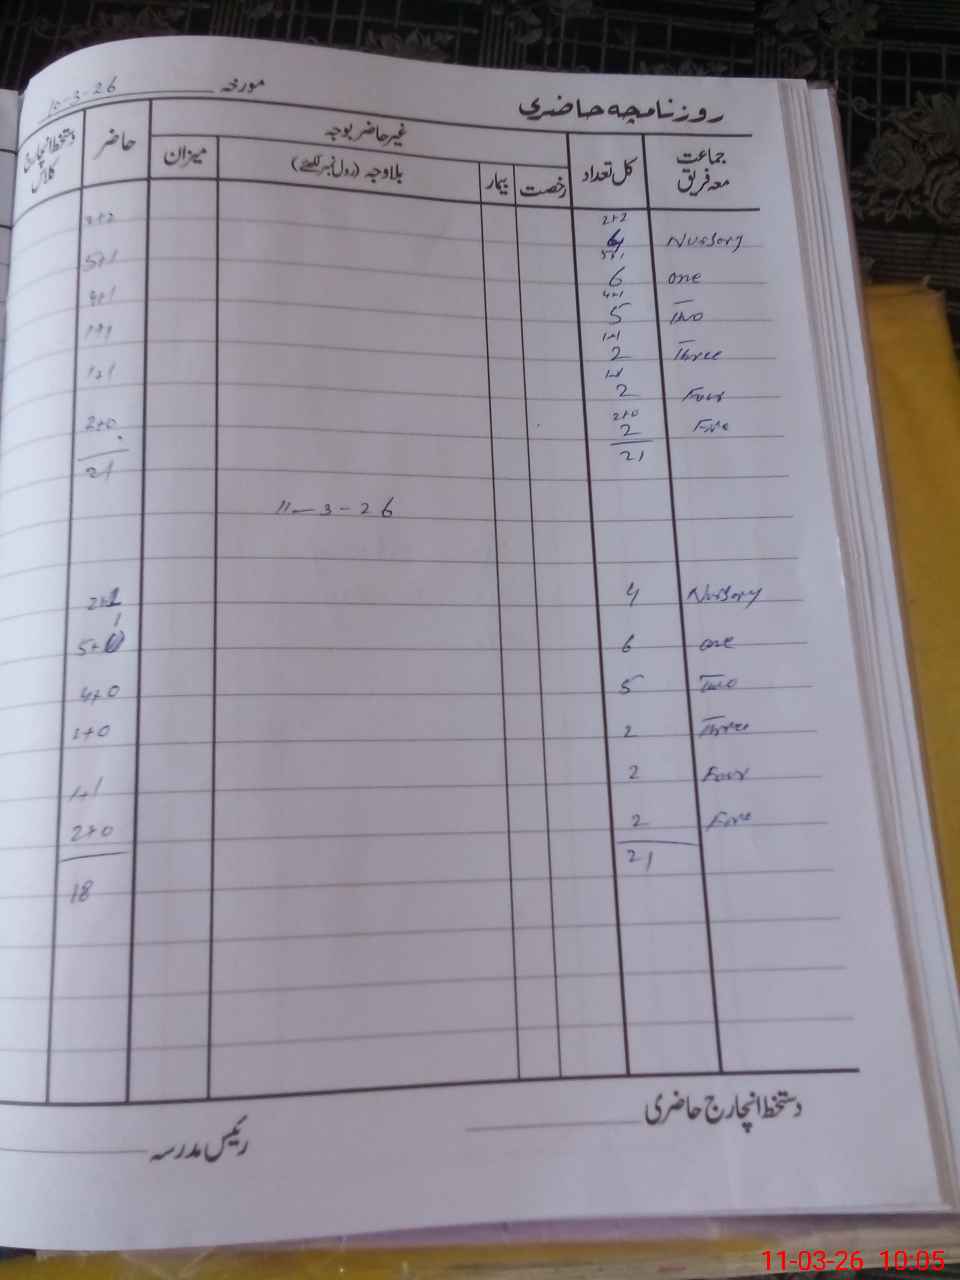 روزنامچہ حاضری مورخہ 10-3-26
جماعت معہ فریق کل تعداد غیر حاضر بوجہ حاضر دستخط انچارج کلاس
رخصت بیمار بلاوجہ (رول نمبر لکھئے) میزان
2+2
Nursery 4 2+2
5+1
one 6 5+1
4+1
Two 5 4+1
1+1
Three 2 1+1
1+1
Four 2 1+1
2+0
Five 2 2+0
21 21
11-3-26
Nursery 4 2+1
one 6 5+
Two 5 4+0
Three 2 1+0
Four 2 1+1
Five 2 2+0
21 18
دستخط انچارج حاضری
رئیس مدرسہ
11-03-26 10:05